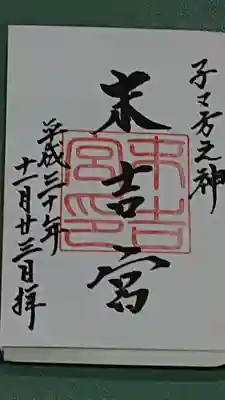 子ヌ方之神
末吉宮
末吉宮印
平成三十年
十一月廿三日拝